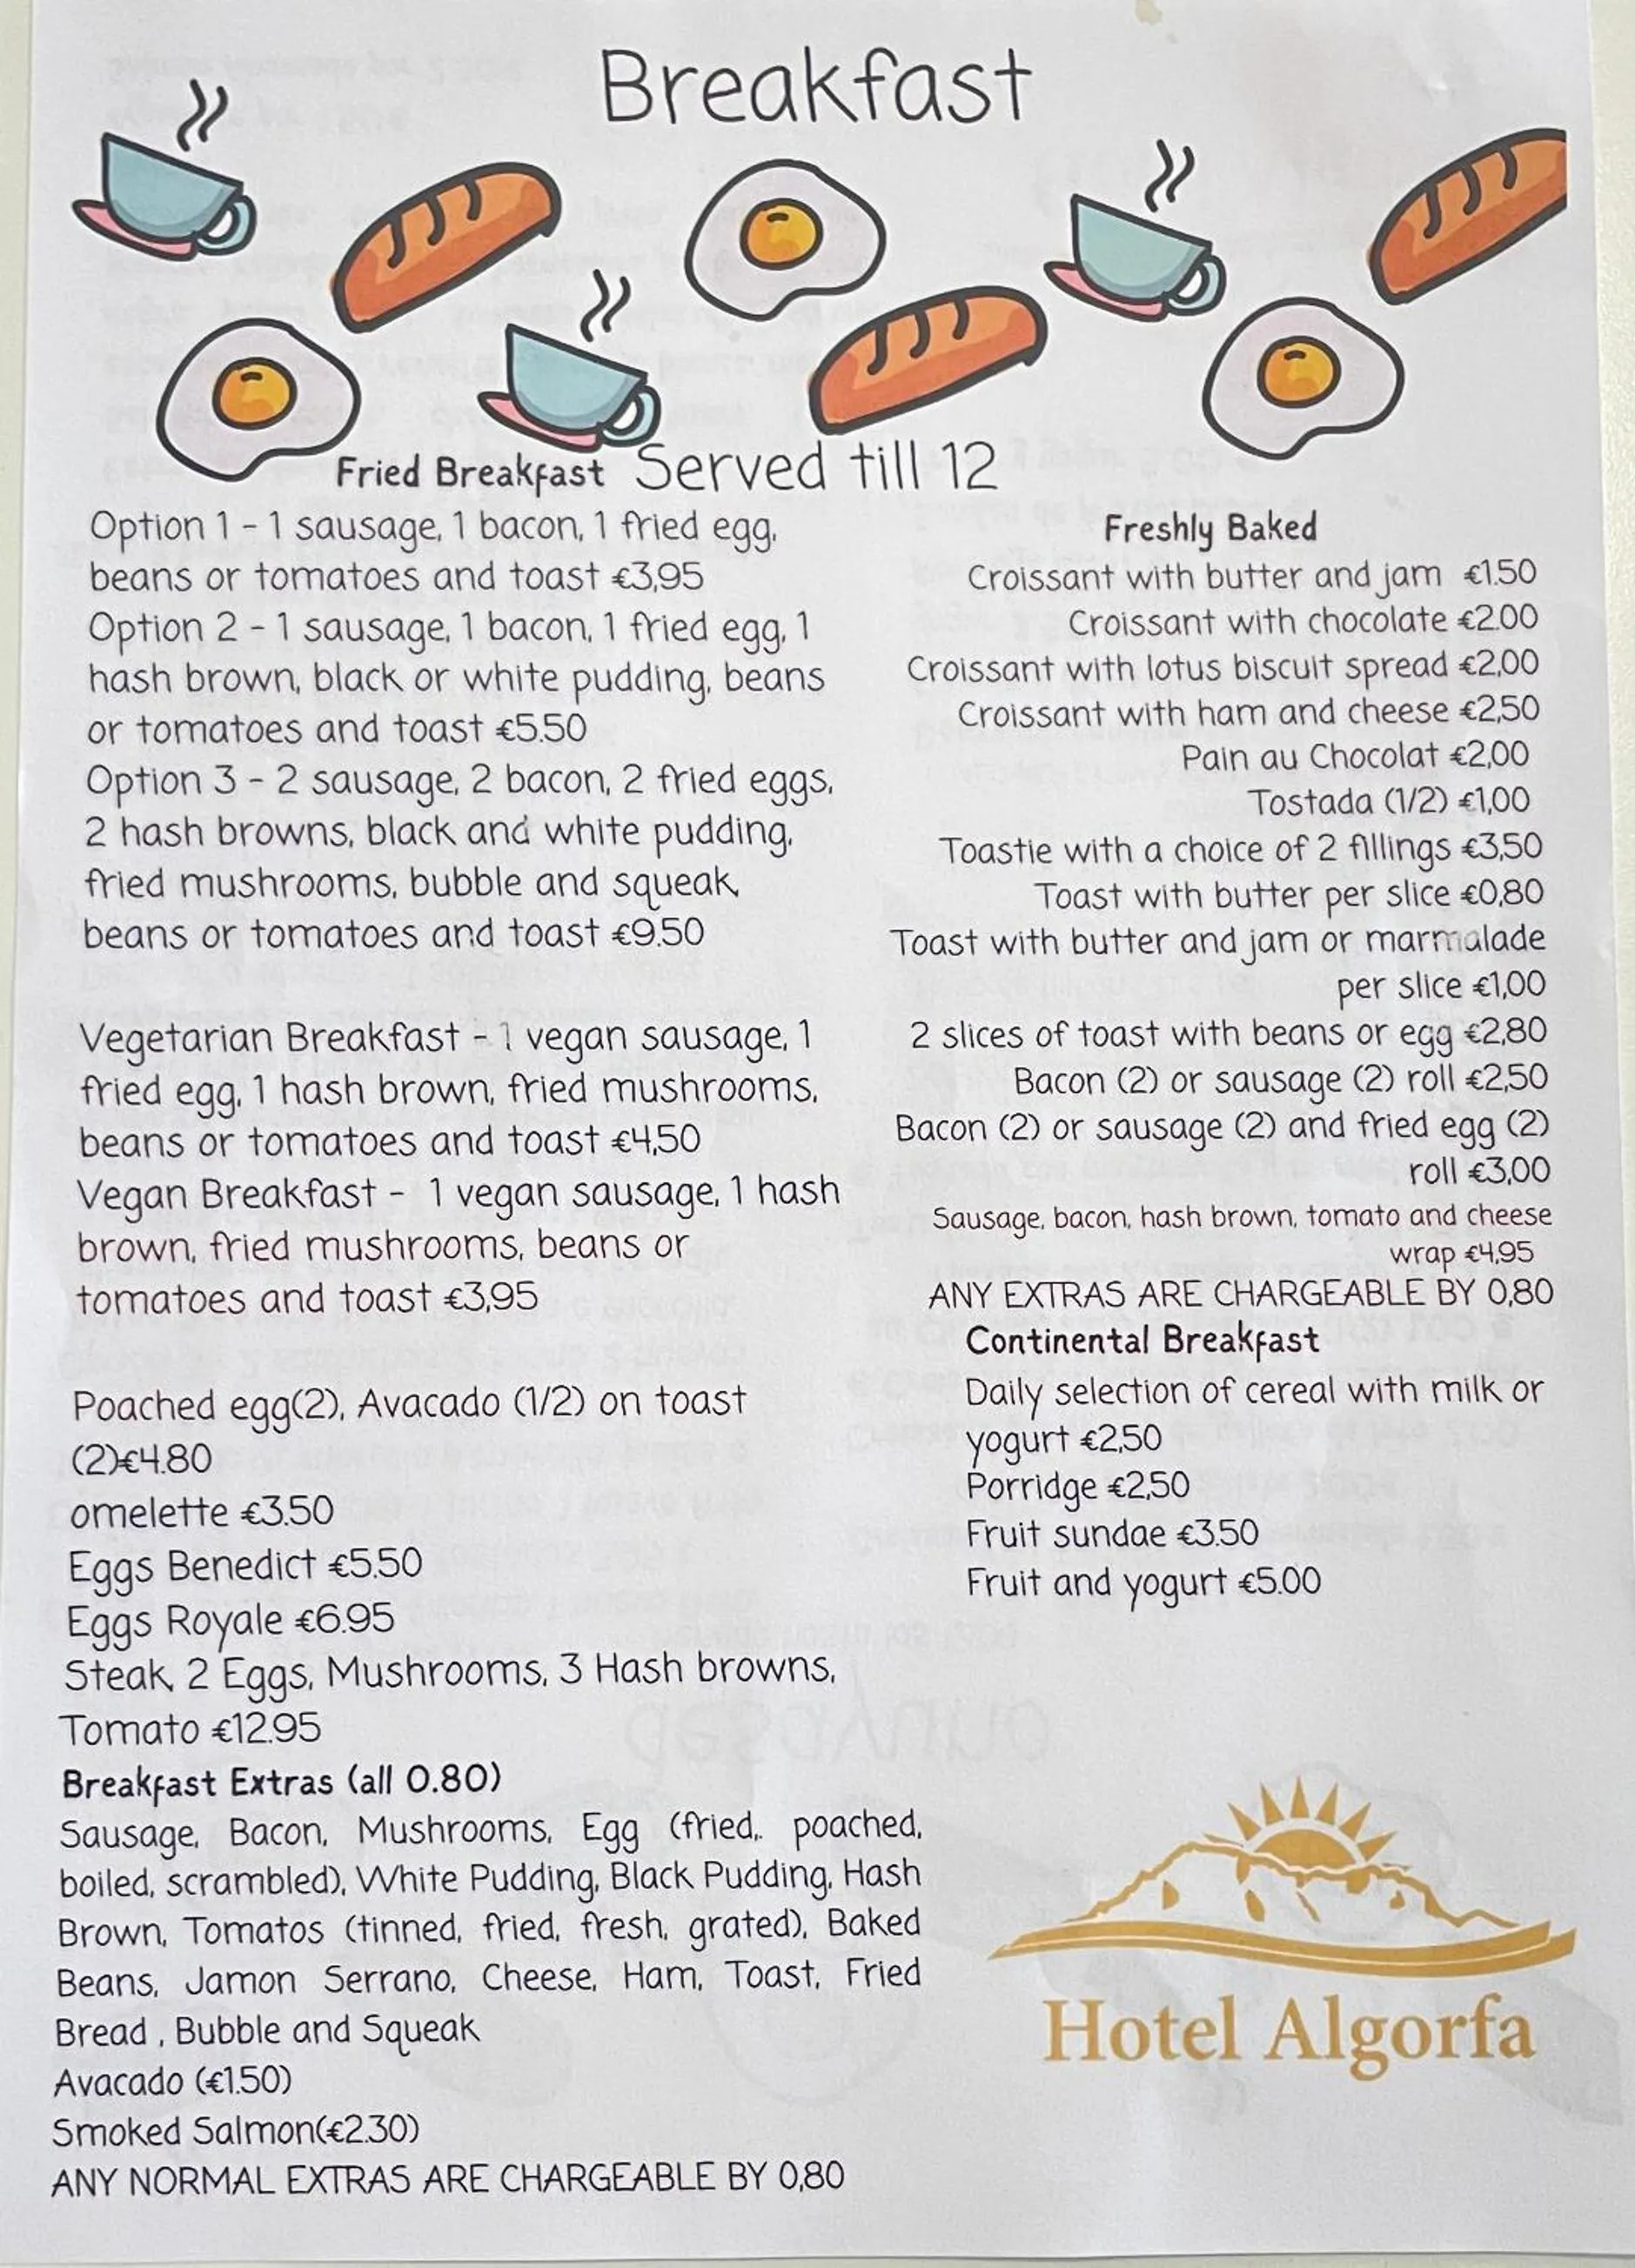 Breakfast
Fried Breakfast Served till 12
Option 1 - 1 sausage, 1 bacon, 1 fried egg,
beans or tomatoes and toast €3,95
Option 2 - 1 sausage, 1 bacon, 1 fried egg, 1
hash brown, black or white pudding, beans
or tomatoes and toast €5.50
Option 3 - 2 sausage, 2 bacon, 2 fried eggs,
2 hash browns, black and white pudding,
fried mushrooms, bubble and squeak,
beans or tomatoes and toast €9.50
Vegetarian Breakfast - 1 vegan sausage, 1
fried egg, 1 hash brown, fried mushrooms,
beans or tomatoes and toast €4,50
Vegan Breakfast - 1 vegan sausage, 1 hash
brown, fried mushrooms, beans or
tomatoes and toast €3,95
Poached egg(2), Avacado (1/2) on toast
(2)€4.80
omelette €3.50
Eggs Benedict €5.50
Eggs Royale €6.95
Steak, 2 Eggs, Mushrooms, 3 Hash browns,
Tomato €12.95
Breakfast Extras (all 0.80)
Sausage, Bacon, Mushrooms, Egg (fried,. poached,
boiled, scrambled), White Pudding, Black Pudding, Hash
Brown, Tomatos (tinned, fried, fresh, grated), Baked
Beans, Jamon Serrano, Cheese, Ham, Toast, Fried
Bread , Bubble and Squeak
Avacado (€1.50)
Smoked Salmon(€2.30)
ANY NORMAL EXTRAS ARE CHARGEABLE BY 0,80
Freshly Baked
Croissant with butter and jam €1.50
Croissant with chocolate €2.00
Croissant with lotus biscuit spread €2,00
Croissant with ham and cheese €2,50
Pain au Chocolat €2,00
Tostada (1/2) €1,00
Toastie with a choice of 2 fillings €3,50
Toast with butter per slice €0,80
Toast with butter and jam or marmalade
per slice €1,00
2 slices of toast with beans or egg €2,80
Bacon (2) or sausage (2) roll €2,50
Bacon (2) or sausage (2) and fried egg (2)
roll €3,00
Sausage, bacon, hash brown, tomato and cheese
wrap €4,95
ANY EXTRAS ARE CHARGEABLE BY 0,80
Continental Breakfast
Daily selection of cereal with milk or
yogurt €2,50
Porridge €2,50
Fruit sundae €3.50
Fruit and yogurt €5.00
Hotel Algorfa